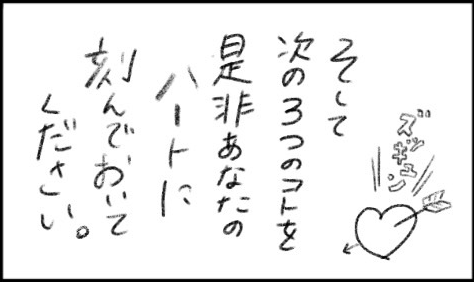 そして
次の3つのコトを
是非あなたの
ハートに
刻んでおいて
ください。
ズッギュン